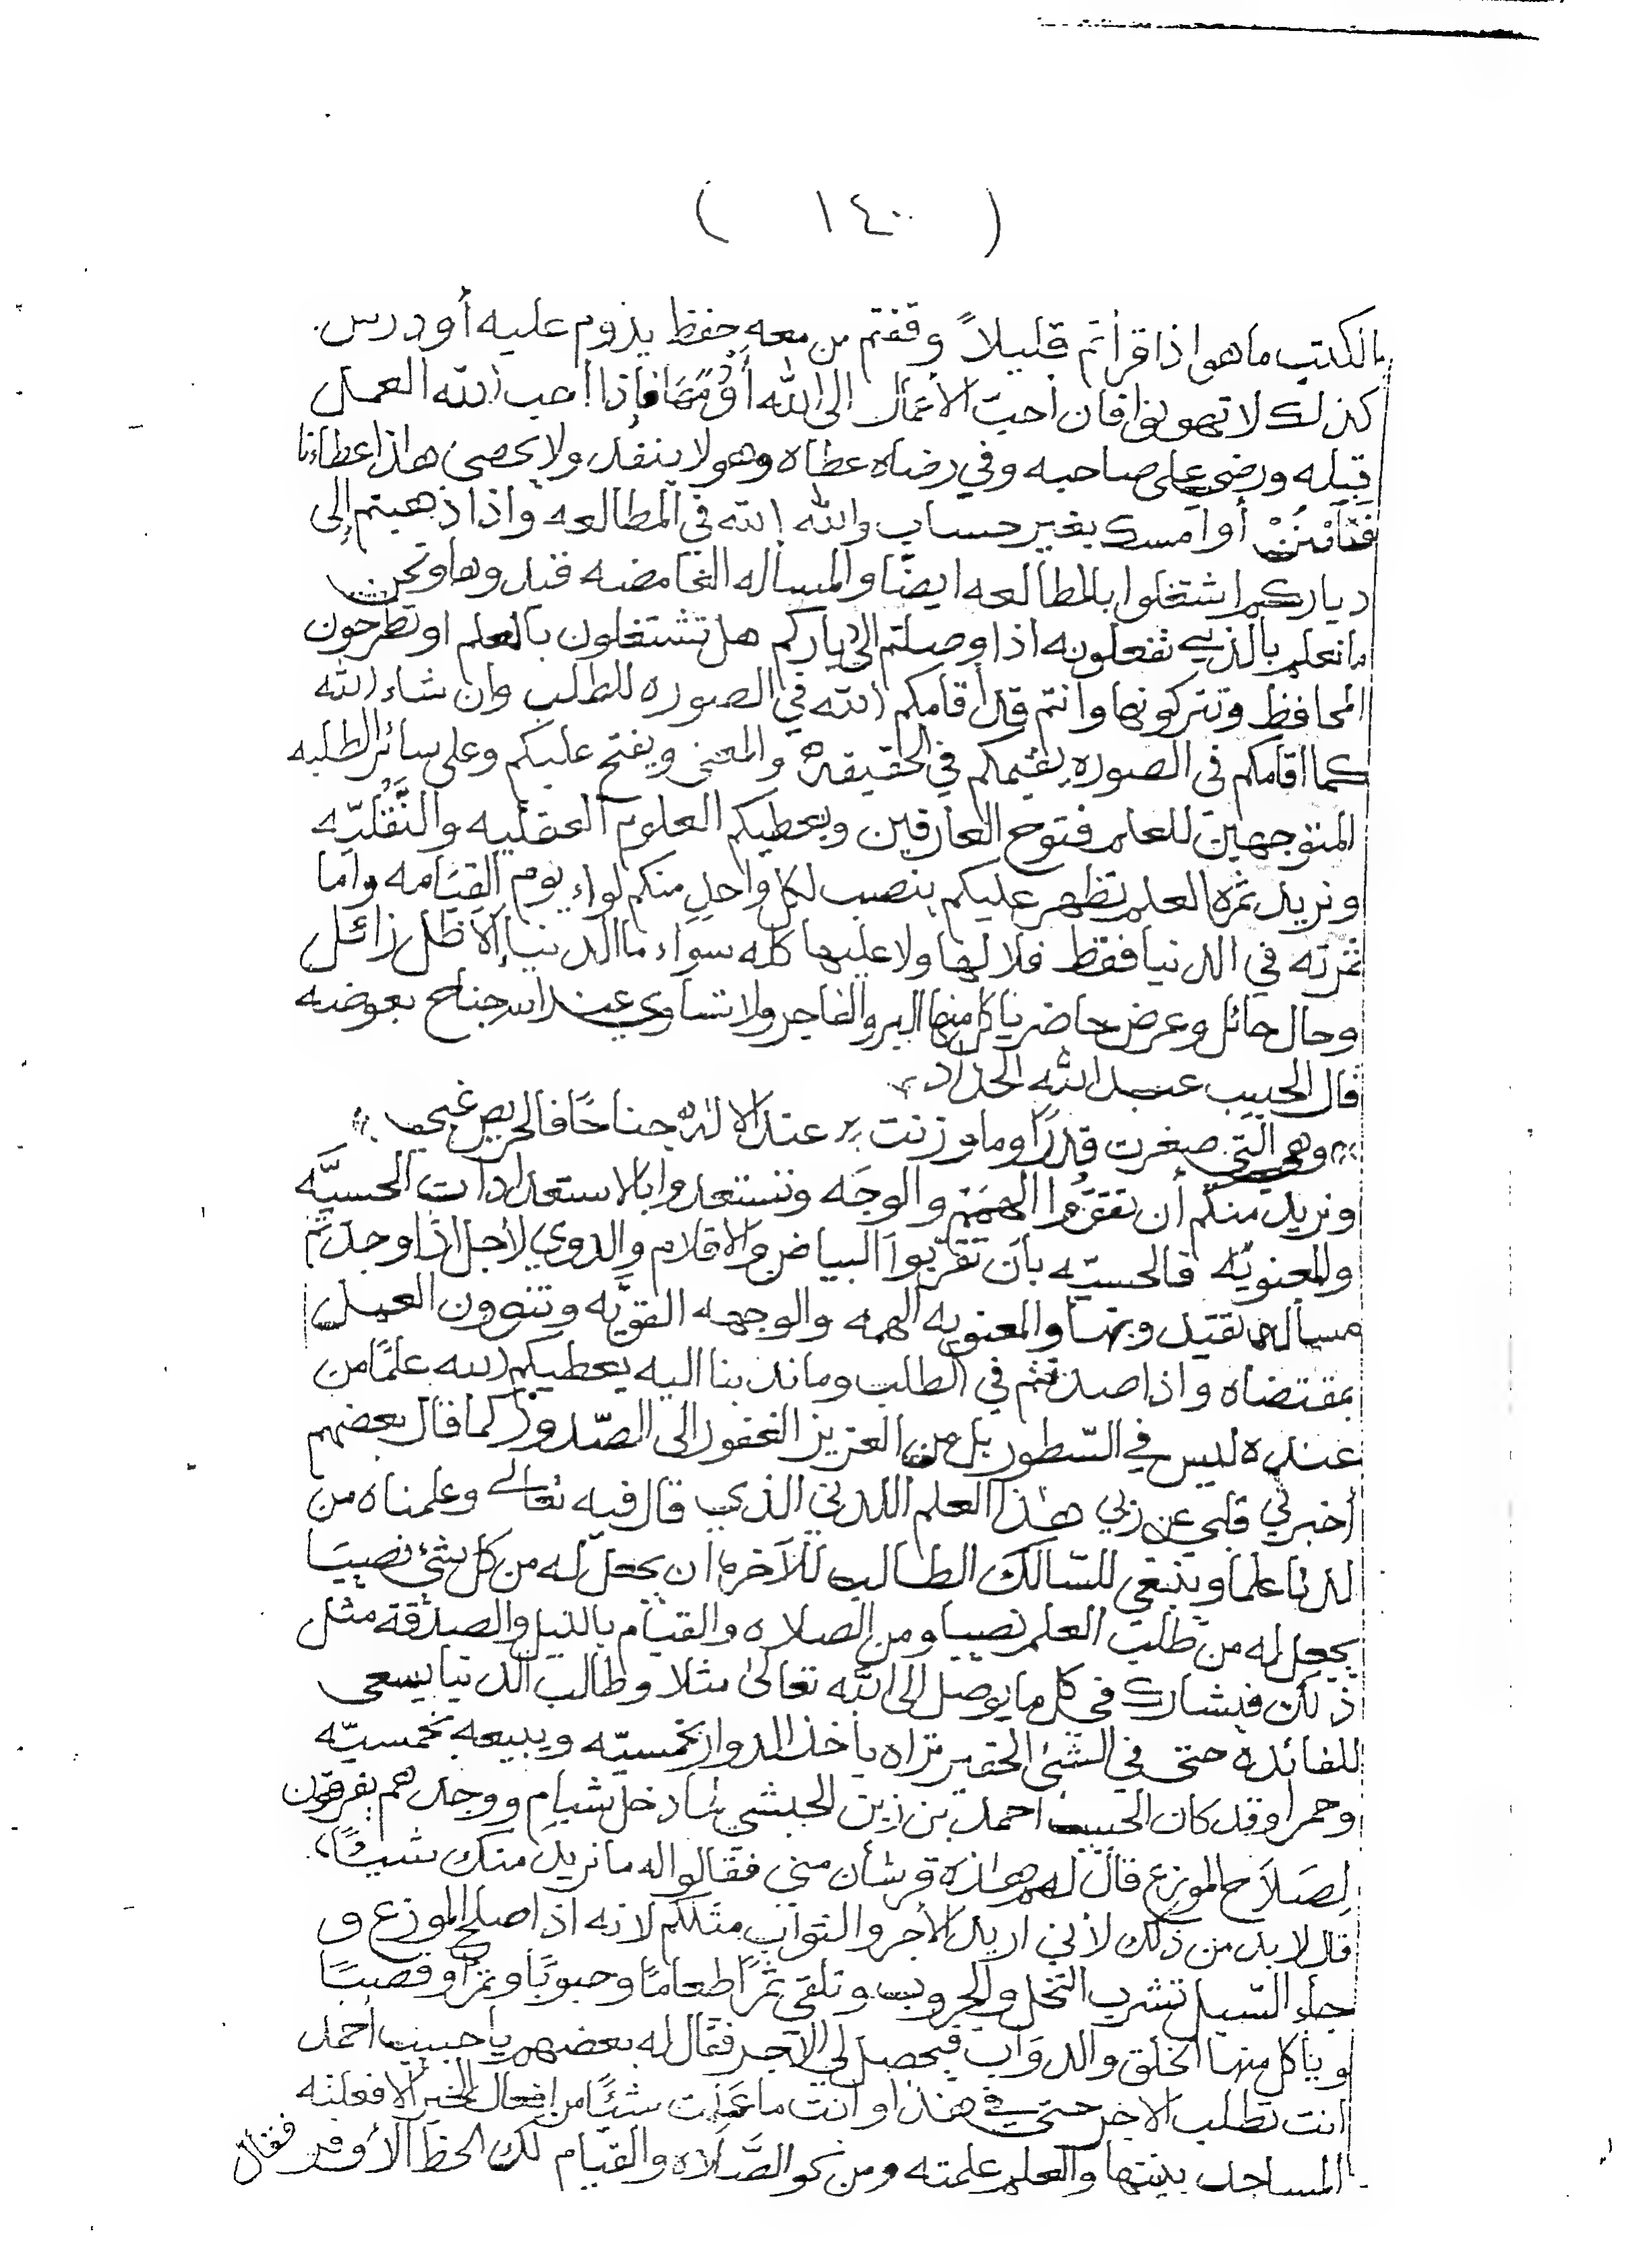 ( ١٤٠ )
بالكتب ما هو اذا قرأتم قليلاً وقفتم من معه حفظ يدوم عليه أو درس
كذلك لا تهونوا فان أحبّ الأعمال الى الله أدومها فاذا أحب الله العمل
قبله ورضي على صاحبه وفي رضاه عطاه وهو لا ينفد ولا يحصى هاذا عطاءنا
فَامْنُنْ أو أمسك بغير حساب والله الله في المطالعه واذا ذهبتم إلى
دياركم اشتغلوا بالمطالعه ايضًا والمساله الغامضه قيدوها ونحن
ما نعلم بالذي تفعلونه اذا وصلتم الى دياركم هل تشتغلون بالعلم او تطرحون
المحافظ وتتركونها وأنتم قد أقامكم الله في الصوره للطلب وان شاء الله
كما اقامكم في الصوره يقيمكم في الحقيقه والمعنى ويفتح عليكم وعلى سائر الطلبه
المتوجهين للعلم فتوح العارفين ويعطيكم العلوم العقليه والنَّقْليّه
ونريد ثمره العلم تظهر عليكم ينصب لكل واحدٍ منكم لواء يوم القيَامه واما
ثمرته في الدنيا فقط فلا لها ولا عليها كله سواء ما الدنيا إلاّ ظل زائل
وحال حائل وعرض حاضر ياكل منها البر والفاجر ولا تساوي عند الله جناح بعوضه
قال الحبيب عبد الله الحداد
وهي التي صغرت قدرًا وما وزنت عند الاله جناحًا فالحريص غبي
ونريد منكم أن تقوّوا الهِمَمْ والوجَه وتستعدوا بالاستعدادات الحسيَّه
والمعنويّه فالحسيّه بأن تقرّبوا البياض والاقلام والدوي لأجل اذا وجدتم
مسأله تقيدونها والمعنويه الهمه والوجهه القويّه وتنوون العمل
بمقتضاه واذا صدقتم في الطلب وما ندبنا اليه يعطيكم الله علمًا من
عنده ليس في السّطور بل من العزيز الغفور الى الصّدور كما قال بعضهم
أخبرني قلبي عن ربي هذا العلم اللدني الذي قال فيه تعالى وعلمناه من
لدنا علما وينبغي للسّالك الطالب للآخره ان يجعل له من كل شئ نصيبًا
يجعل له من طلب العلم نصيبا ومن الصلاه والقيام بالليل والصدقة مثل
ذلك فيشارك في كل ما يوصل الى الله تعالى مثلا وطالب الدنيا يسعى
للفائده حتى في الشئ الحقير تراه يأخذ المدوار بخمسيّه ويبيعه بخمسيّه
وحمرا وقد كان الحبيب احمد بن زين الحبشي لمّا دخل شبام ووجدهم يفرقون
لِصَلاَح الموزع قال لهم هاذه قرشان مني فقالوا له ما نريد منك شيئًا،
قال لا بد من ذلك لأني اريد الأجر والثواب مثلكم لانه اذا صلح الموزع و
جاء السّيل تشرب النخل والجروب وتلقي ثمرًا طعامًا وحبوبًا وتمرًا وقصبًا
ويأكل منها الخلق والدوآب فيحصل لي الآجر فقال له بعضهم يا حبيب أحمد
انت تطلب الاجر حتى في هذا وأنت ما عَذْت شيئًا من افعال الخير الا فعلته
المساجد بنيتها والعلم علمته ومن كو الصَّلاه والقيام لك الحظ الأوفر فقال